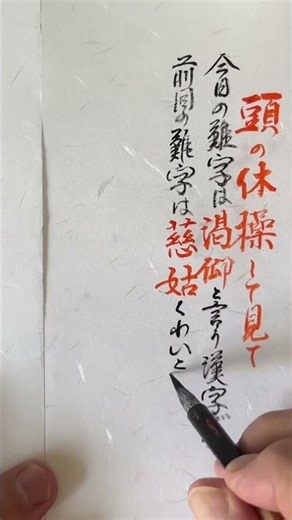 頭の体操して見て
今日の難字は渇仰と言う漢字
前回の難字は慈姑くわいと